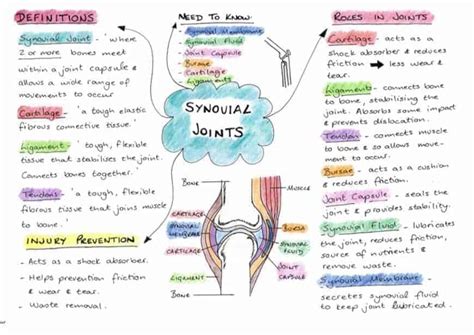 DEFINITIONS
Synovial Joint - 'where
2 or more bones meet
within a joint capsule &
allows a wide range of
movements to occur.
Cartilage - 'a tough elastic
fibrous connective tissue.'
Ligament - 'tough, flexible
tissue that stabilises the joint.
Connects bones together.'
Tendons - 'a tough, flexible
fibrous tissue that joins muscle
to bone.'
INJURY PREVENTION
- Acts as a shock absorber.
- Helps prevention friction
& wear & tear.
- Waste removal.
NEED TO KNOW
- Synovial Membrane
- Synovial Fluid
- Joint Capsule
- Bursae
- Cartilage
- Ligaments
SYNOVIAL
JOINTS
BONE
MUSCLE
CARTILAGE
SYNOVIAL
MEMBRANE
LIGAMENT
BURSA
SYNOVIAL
FLUID
JOINT
CAPSULE
TENDON
BONE
ROLES IN JOINTS
Cartilage - acts as a
shock absorber & reduces
friction → less wear &
tear.
Ligaments - connects bone
to bone, stabilising the
joint. Absorbs some impact
& prevents dislocation.
Tendons - connects muscle
to bone & so allows move-
ment to occur.
Bursae - acts as a cushion
& reduces friction.
Joint Capsule - seals the
joint & provides stability.
Synovial Fluid - lubricates
the joint, reduces friction,
source of nutrients &
remove waste.
Synovial Membrane -
secretes synovial fluid to
keep joint lubricated.